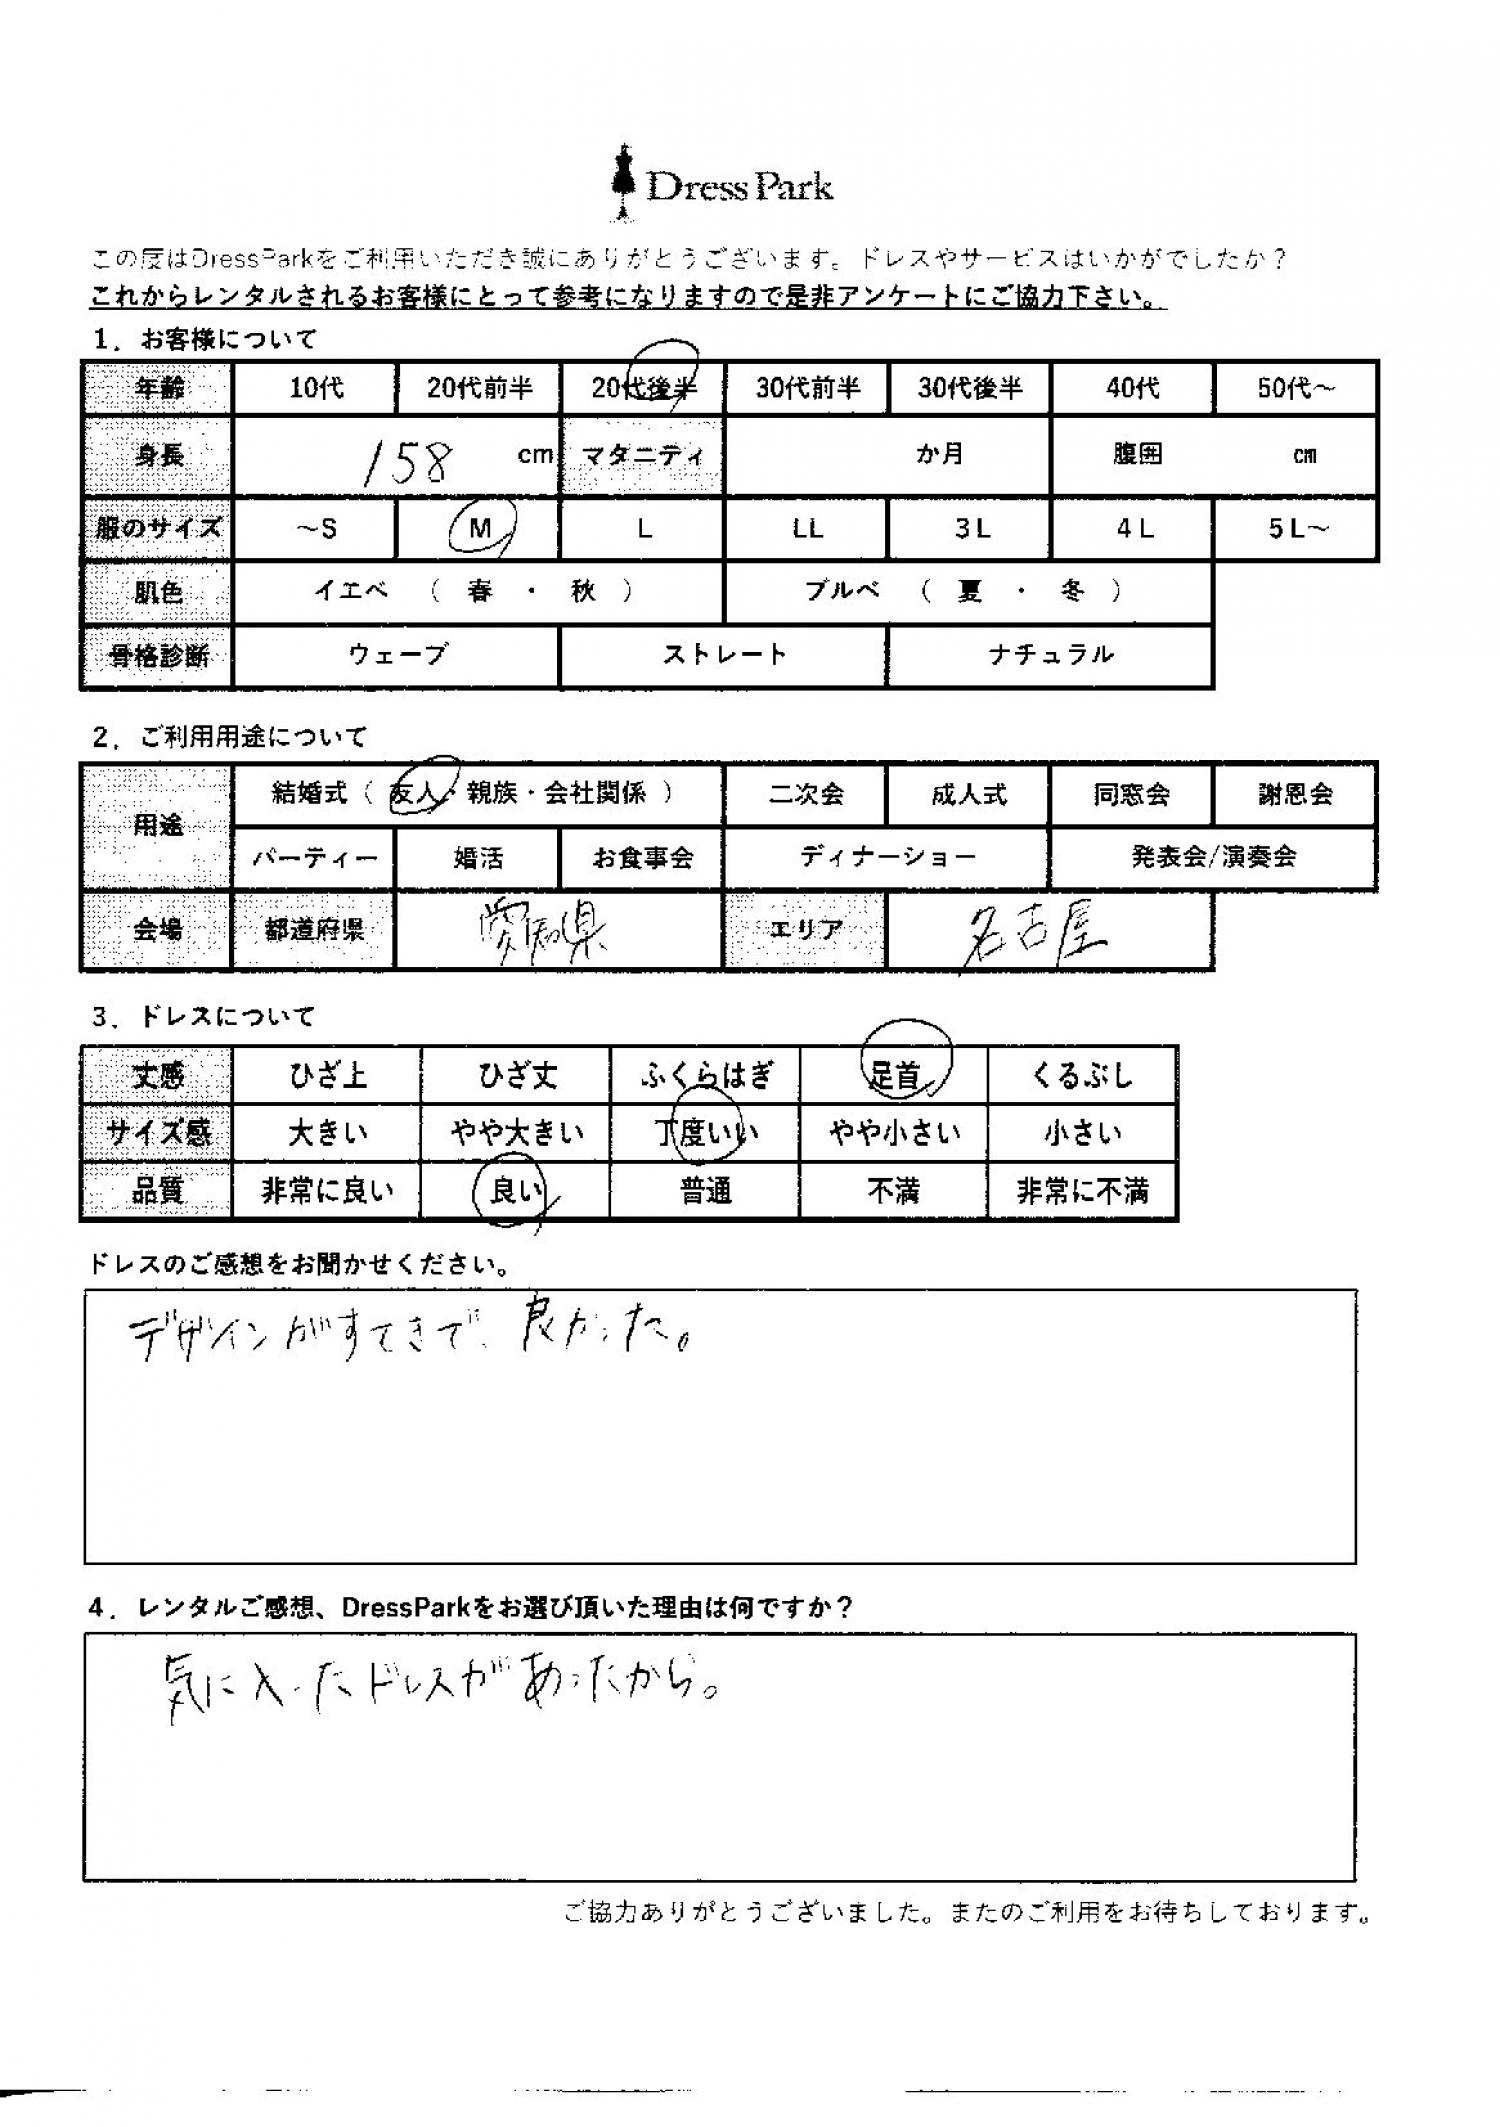 Dress Park
この度はDressParkをご利用いただき誠にありがとうございます。ドレスやサービスはいかがでしたか？
これからレンタルされるお客様にとって参考になりますので是非アンケートにご協力下さい。
1．お客様について
年齢 10代 20代前半 20代後半 30代前半 30代後半 40代 50代～
身長 158 cm マタニティ か月 腹囲 cm
服のサイズ ～S M L LL 3L 4L 5L～
肌色 イエベ（ 春 ・ 秋 ） ブルベ（ 夏 ・ 冬 ）
骨格診断 ウェーブ ストレート ナチュラル
2．ご利用用途について
用途 結婚式（ 友人・親族・会社関係 ） 二次会 成人式 同窓会 謝恩会
パーティー 婚活 お食事会 ディナーショー 発表会/演奏会
会場 都道府県 愛知県 エリア 名古屋
3．ドレスについて
丈感 ひざ上 ひざ丈 ふくらはぎ 足首 くるぶし
サイズ感 大きい やや大きい 丁度いい やや小さい 小さい
品質 非常に良い 良い 普通 不満 非常に不満
ドレスのご感想をお聞かせください。
デザインがすてきで、良かった。
4．レンタルご感想、DressParkをお選び頂いた理由は何ですか？
気に入ったドレスがあったから。
ご協力ありがとうございました。またのご利用をお待ちしております。